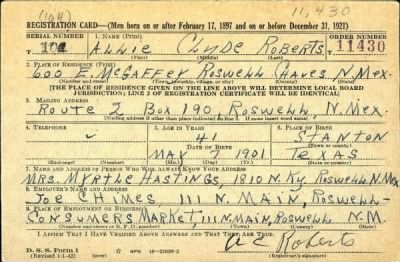 (104)
11,430
REGISTRATION CARD—(Men born on or after February 17, 1897 and on or before December 31, 1921)
SERIAL NUMBER 1. NAME (Print) ORDER NUMBER
ALLIE CLYDE ROBERTS 11430
(First) (Middle) (Last)
2. PLACE OF RESIDENCE (Print)
600 E. McGAFFEY ROSWELL CHAVES N. MEX.
(Number and street) (Town, township, village, or city) (County) (State)
[THE PLACE OF RESIDENCE GIVEN ON THE LINE ABOVE WILL DETERMINE LOCAL BOARD
JURISDICTION; LINE 2 OF REGISTRATION CERTIFICATE WILL BE IDENTICAL]
3. MAILING ADDRESS
ROUTE 2 BOX 190 ROSWELL, N. MEX.
4. TELEPHONE 5. AGE IN YEARS 6. PLACE OF BIRTH
41 STANTON
DATE OF BIRTH (Town or county)
MAY 7 1901 TEXAS
(Exchange) (Number) (Mo.) (Day) (Yr.) (State or country)
7. NAME AND ADDRESS OF PERSON WHO WILL ALWAYS KNOW YOUR ADDRESS
MRS. MYRTLE HASTINGS, 1810 N. KY. ROSWELL N. MEX
8. EMPLOYER'S NAME AND ADDRESS
JOE CHIMES, 111 N. MAIN, ROSWELL-
9. PLACE OF EMPLOYMENT OR BUSINESS
CONSUMERS MARKET, 111 N. MAIN, ROSWELL N. M.
(Number and street or R. F. D. number) (Town) (County) (State)
I AFFIRM THAT I HAVE VERIFIED ABOVE ANSWERS AND THAT THEY ARE TRUE.
D. S. S. Form 1
(Revised 1-1-42) (over)
A C Roberts
(Registrant's signature)